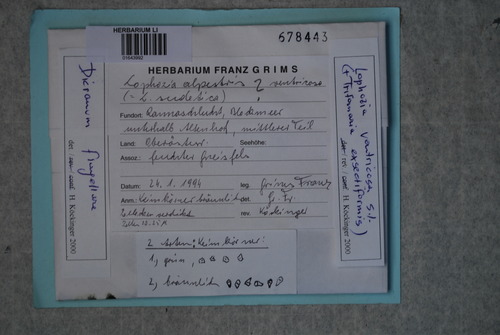 HERBARIUM LI
678443
HERBARIUM FRANZ GRIMS
Lophozia alpestris ? ventricosa
(= L. sudetica)
Fundort: Rannaschlucht,
unterhalb, mittlerer Teil
Land: Oberösterr. Seehöhe:
Assoz.: feuchter Fels
Datum: 24.1.1994 leg. Grims Franz
Anm.: Keimkörner bräunlich det. Gr. Fr.
rev. Köckinger
2 Arten: Keimkörner:
1, grün,
2, bräunlich
Dicranum flagellare
det / rev / conf. H. Köckinger 2000
Lophozia ventricosa s.l.
(+ Tritomaria exsectiformis)
det / rev / conf. H. Köckinger 2000